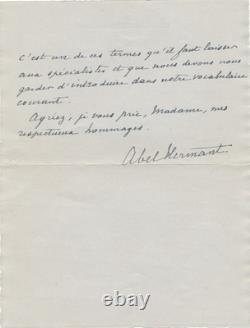 c'est un de ces termes qu'il faut laisser
aux spécialistes et que nous devons nous
garder d'introduire dans notre vocabulaire
courant.
Agréez, je vous prie, Madame, mes
respectueux hommages.
Abel Hermant
ebay